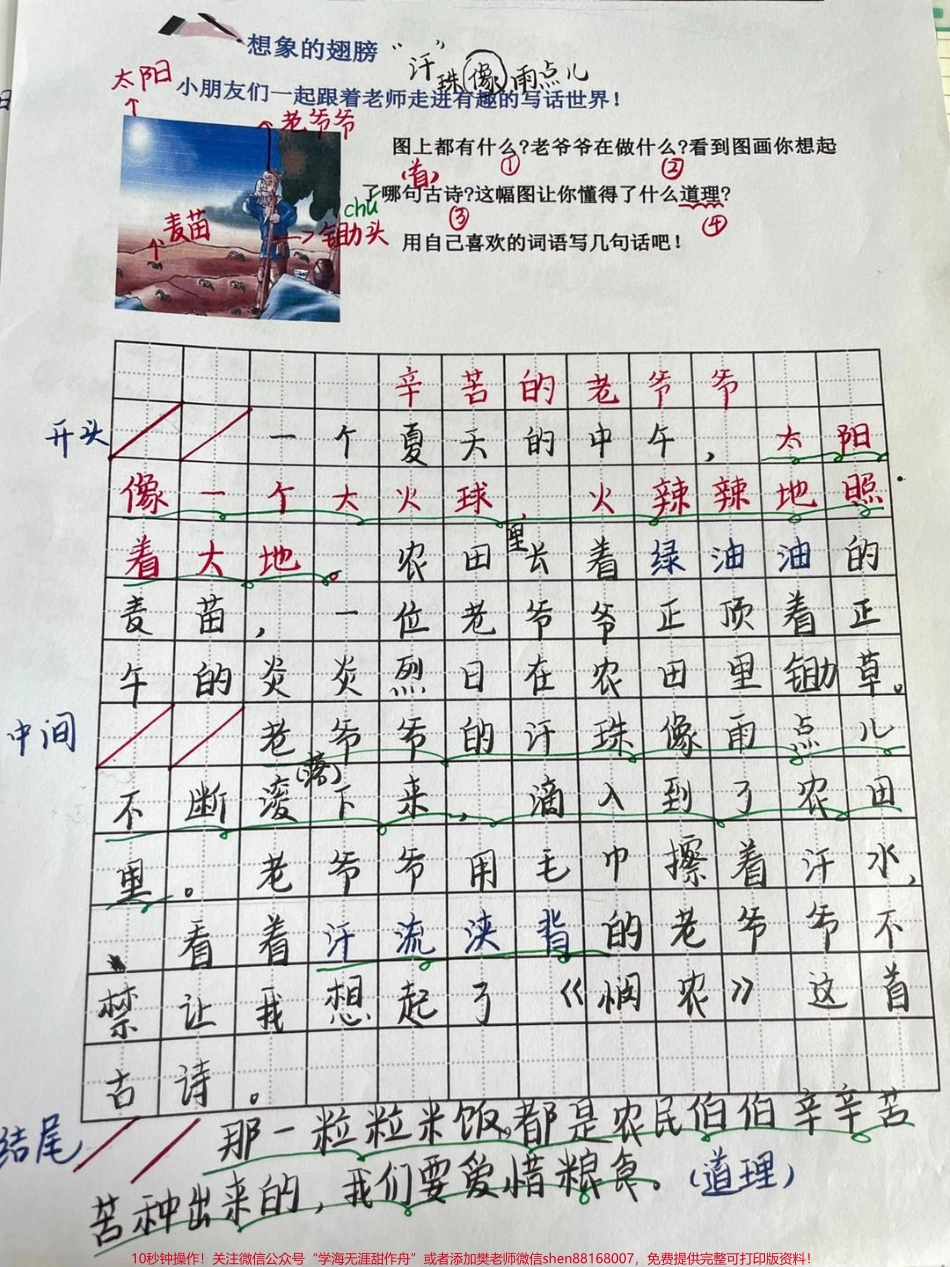 想象的翅膀
“汗”珠像雨点儿
太阳
小朋友们一起跟着老师走进有趣的写话世界！
老爷爷
图上都有什么?老爷爷在做什么?看到图画你想起
①
②
(首)
了哪句古诗?这幅图让你懂得了什么道理?
chú
麦苗
锄头
③
④
用自己喜欢的词语写几句话吧！
辛苦的老爷爷
开头
一个夏天的中午，太阳
像一个大火球，火辣辣地照
着大地。农田里长着绿油油的
麦苗，一位老爷爷正顶着正
午的炎炎烈日在农田里锄草。
中间
老爷爷的汗珠像雨点儿
(落)
不断滚下来，滴入到了农田
里。老爷爷用毛巾擦着汗水，
看着汗流浃背的老爷爷不
禁让我想起了《悯农》这首
古诗。
结尾
那一粒粒米饭，都是农民伯伯辛辛苦
苦种出来的，我们要爱惜粮食。(道理)
10秒钟操作！关注微信公众号“学海无涯甜作舟”或者添加樊老师微信shen88168007，免费提供完整可打印版资料！